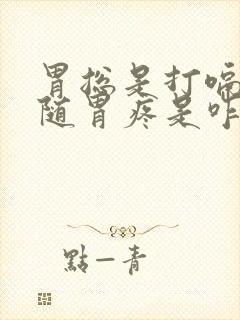 胃总是打嗝
随胃疼是咋
點一青